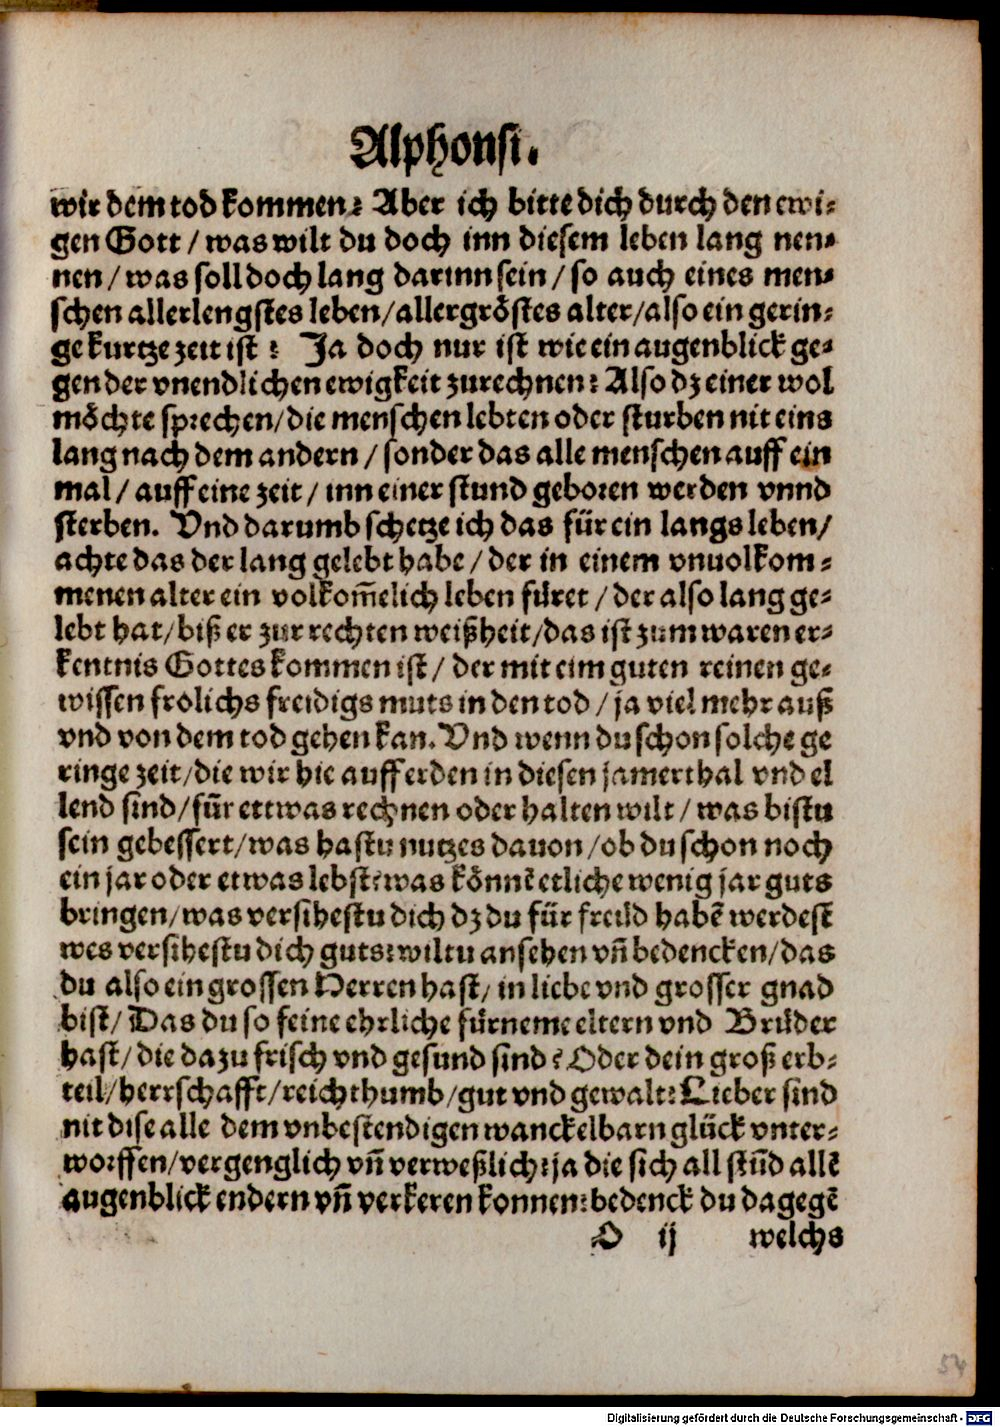 Alphonsi.
wir dem tod kommen? Aber ich bitte dich durch den ewi-
gen Gott / was wilt du doch inn diesem leben lang nen-
nen / was soll doch lang darinn sein / so auch eines men-
schen allerlengstes leben/allergröstes alter/also ein gerin-
ge kurtze zeit ist ? Ja doch nur ist wie ein augenblick ge-
gen der vnendlichen ewigkeit zurechnen? Also dz einer wol
möchte sprechen/die menschen lebten oder sturben nit eins
lang nach dem andern / sonder das alle menschen auff ein
mal / auff eine zeit / inn einer stund geboren werden vnnd
sterben. Vnd darumb schetze ich das für ein langs leben/
achte das der lang gelebt habe / der in einem vnuolkom-
menen alter ein volkom̃elich leben füret / der also lang ge-
lebt hat/biß er zur rechten weißheit/das ist zum waren er-
kentnis Gottes kommen ist / der mit eim guten reinen ge-
wissen frölichs freidigs muts in den tod / ja viel mehr auß
vnd von dem tod gehen kan. Vnd wenn du schon solche ge
ringe zeit/die wir hie auff erden in diesen jamerthal vnd el
lend sind/für ettwas rechnen oder halten wilt / was bistu
sein gebessert/was hastu nutzes dauon /ob du schon noch
ein jar oder etwas lebst?was könnẽ etliche wenig jar guts
bringen/was versihestu dich dz du für freüd habẽ werdest
wes versihestu dich guts?wiltu ansehen vñ bedencken/das
du also ein grossen Herren hast/ in liebe vnd grosser gnad
bist/ Das du so feine ehrliche fürneme eltern vnd Brüder
hast/die dazu frisch vnd gesund sind ? Oder dein groß erb-
teil/herrschafft/reichthumb/gut vnd gewalt? Lieber sind
nit dise alle dem vnbestendigen wanckelbarn glück vnter-
worffen/vergenglich vñ verweßlich?ja die sich all stũd allẽ
augenblick endern vñ verkeren konnen?bedenck du dagegẽ
O ij welchs
54
Digitalisierung gefördert durch die Deutsche Forschungsgemeinschaft - DFG